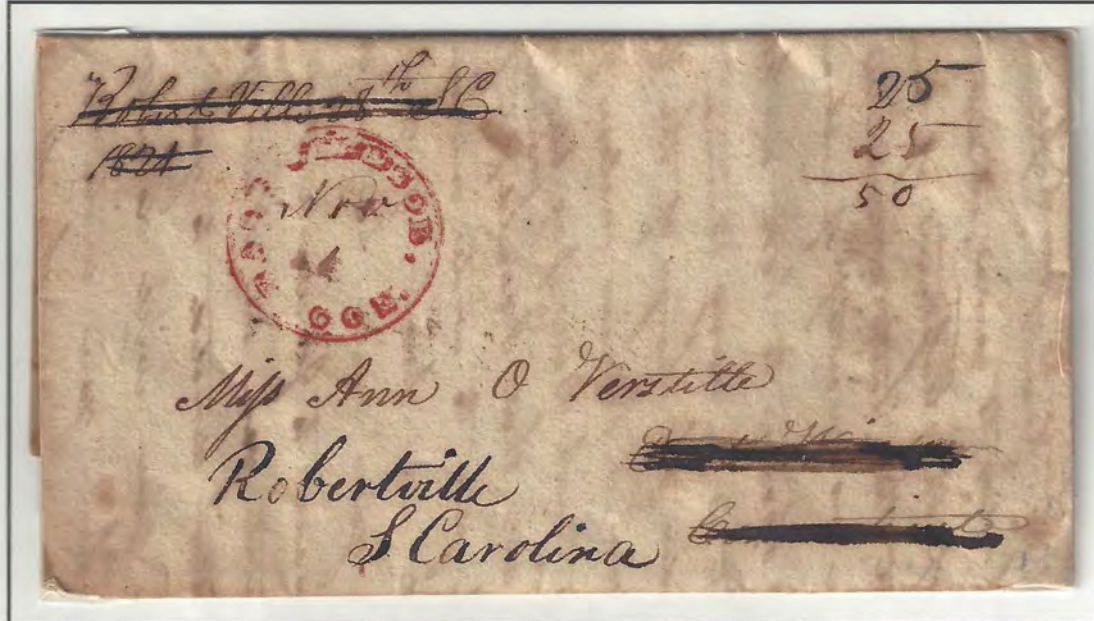 Robert Ville 28th SC
1824
25
25
50
Nov
14
CON.
Miss Ann O Verstille
Robertville
S Carolina